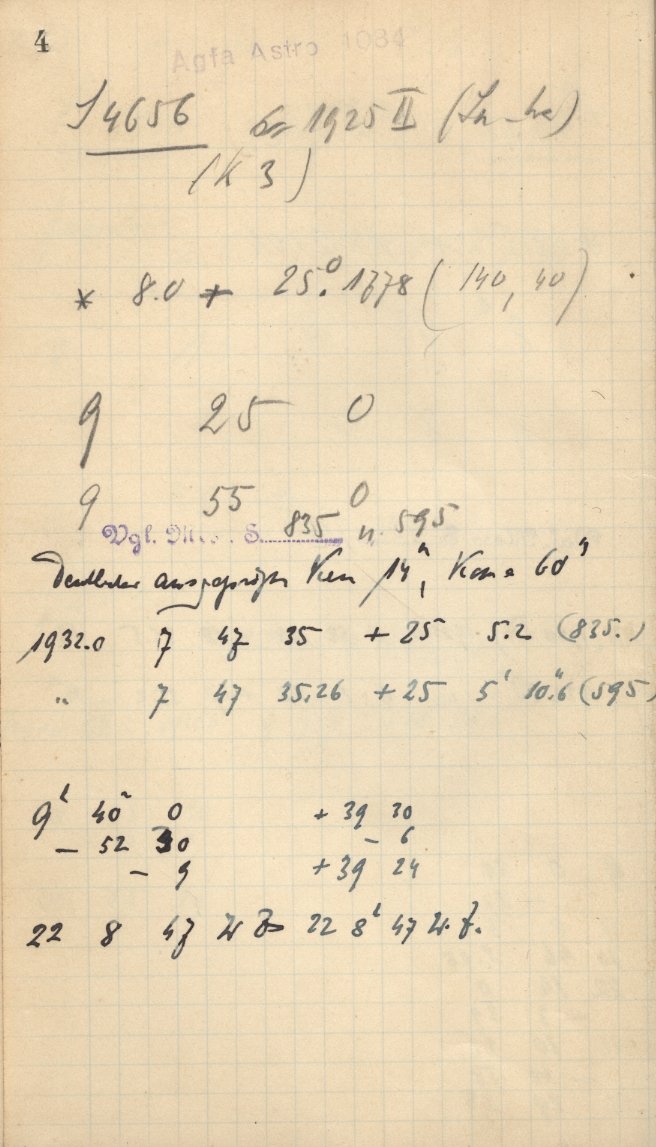 4
Agfa Astro 1034
S 4656 1925 II
(K 3)
* 8.0 + 25.°1778 (140, 40)
9 25 0
9 55 0
Vgl. S. 835 u 595
Deutlicher ausgeprägter Kern 14ᵐ, Koma 60"
1932.0 7 47 35 + 25 5.2 (835.)
" 7 47 35.26 + 25 5' 10."6 (595)
9ʰ 40ᵐ 0 + 39 30
– 52 30 – 6
– 9 + 39 24
22 8 47 W. Z. 22 8ʰ 47 W. Z.